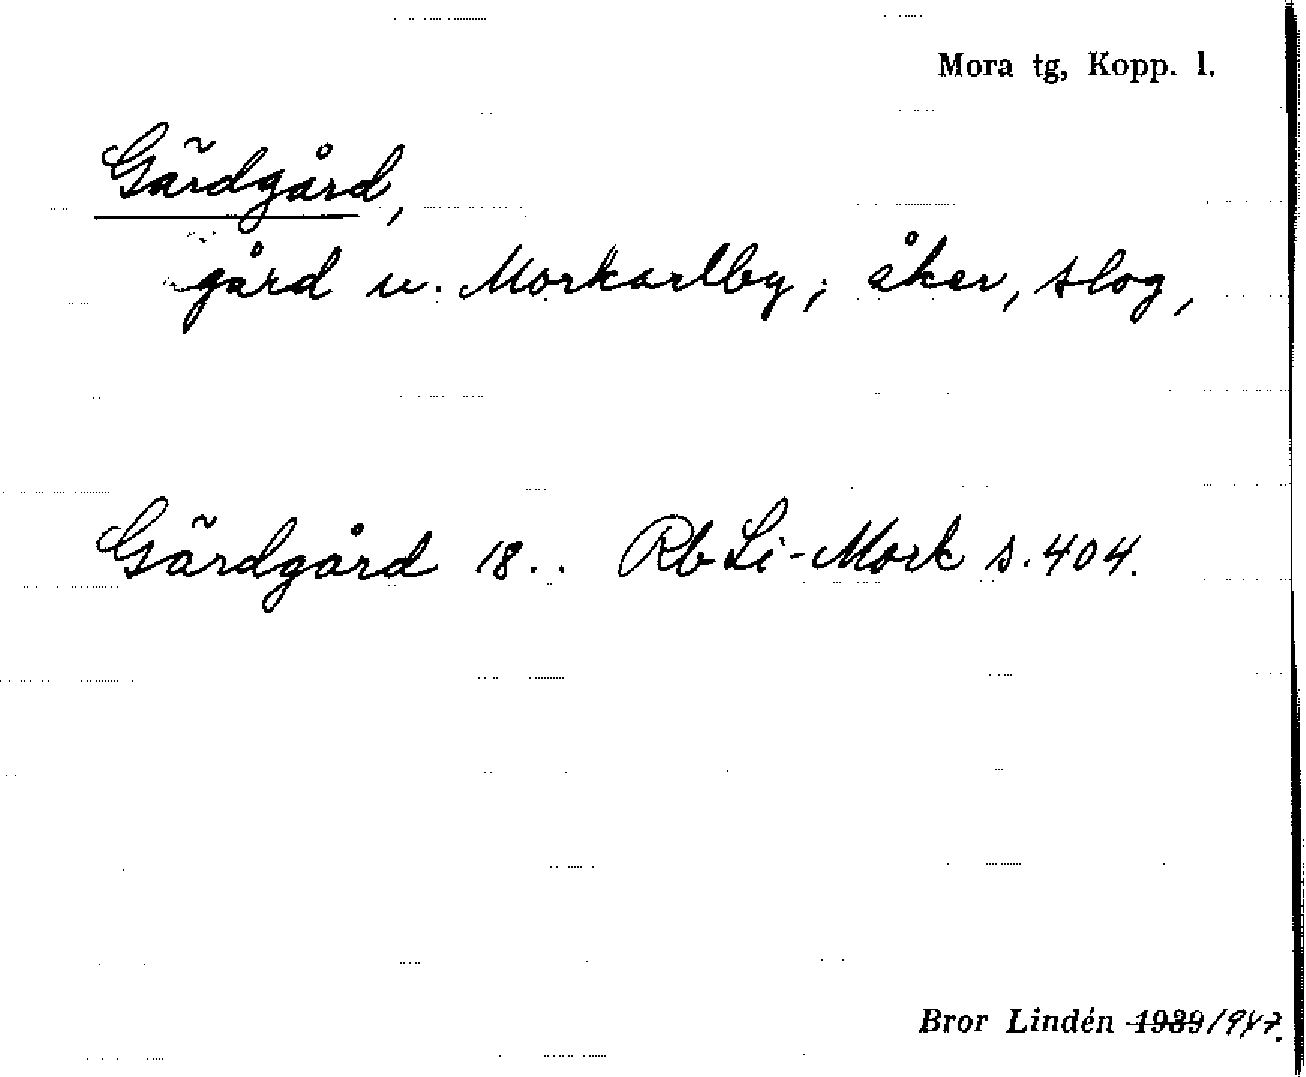 Mora tg, Kopp. l.
Gärdgård,
gård u. Morkarlby; åker, slog,
Gärdgård 18.. Rb Li-Mork s. 404.
Bror Lindén 1939/947.